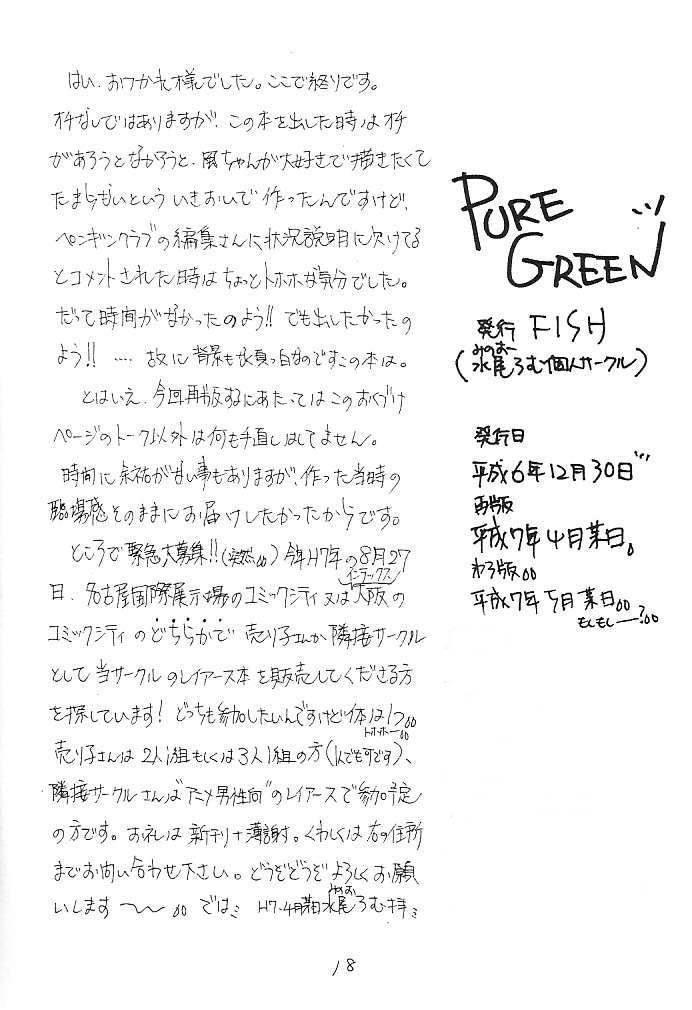 はい、おつかれ様でした。ここで終りです。
オチなしではありますが、この本を出した時はオチ
があろうとなかろうと、風ちゃんが大好きで描きたくて
たまらないといういきおいで作ったんですけど、
ペンギンクラブの編集さんに状況説明に欠けてる
とコメントされた時はちょっとトホホな気分でした。
だって時間がなかったのよう!!でも出したかったの
よう!! …. 故に背景も水真っ白なのですこの本は。
とはいえ、今回再版するにあたってはこのおくづけ
ページのトーク以外は何も手直しはしてません。
時間に余裕が甘い事もありますが、作った当時の
臨場感そのままにお届けしたかったからです。
ところで緊急大募集!!(突然。。)今年H7年の8月27
日、名古屋国際展示場のコミックシティ又は大阪の
インテックス
コミックシティのどちらかで売り子さんか隣接サークル
として当サークルのレイアース本を販売してくださる方
を探しています!どっちも参加したいんですけど体は1つ。。
トホホー。。
売り子さんは2人1組もしくは3人1組の方(1人でも可です)、
隣接サークルさんは"アニメ男性向"のレイアースで参加予定
の方です。お礼は新刊+薄謝。くわしくは右の住所
までお問い合わせ下さい。どうぞどうぞよろしくお願
いします〜〜。。では
みのお
H7.4月某日水尾ろむ拝
18
PURE
GREEN
発行 FISH
みのおー
(水尾ろむ個人サークル)
発行日
平成6年12月30日
再版
平成7年4月某日。
平成7年5月某日。。
もしもしー?。。